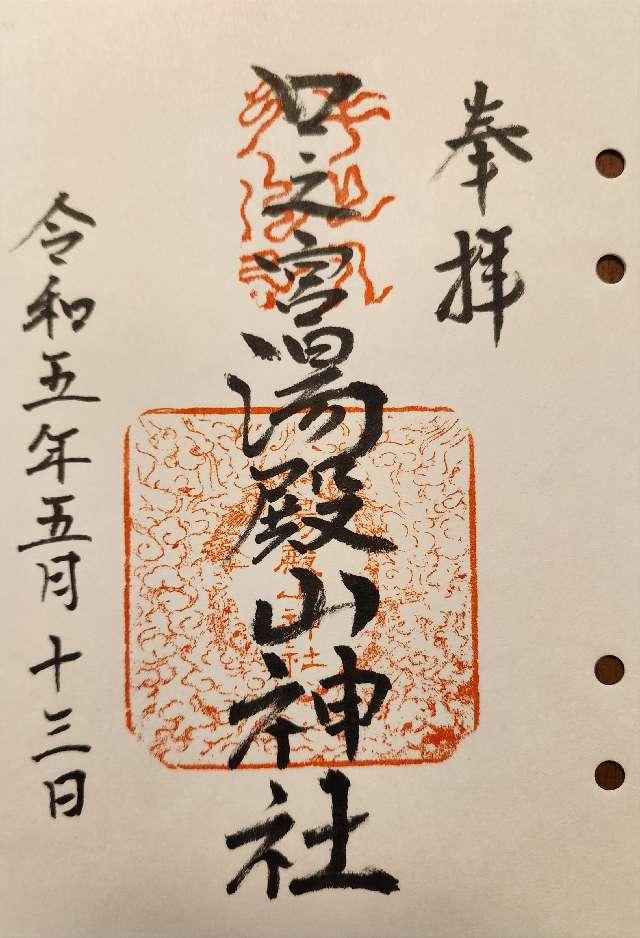 奉拝
口之宮湯殿山神社
令和五年五月十三日